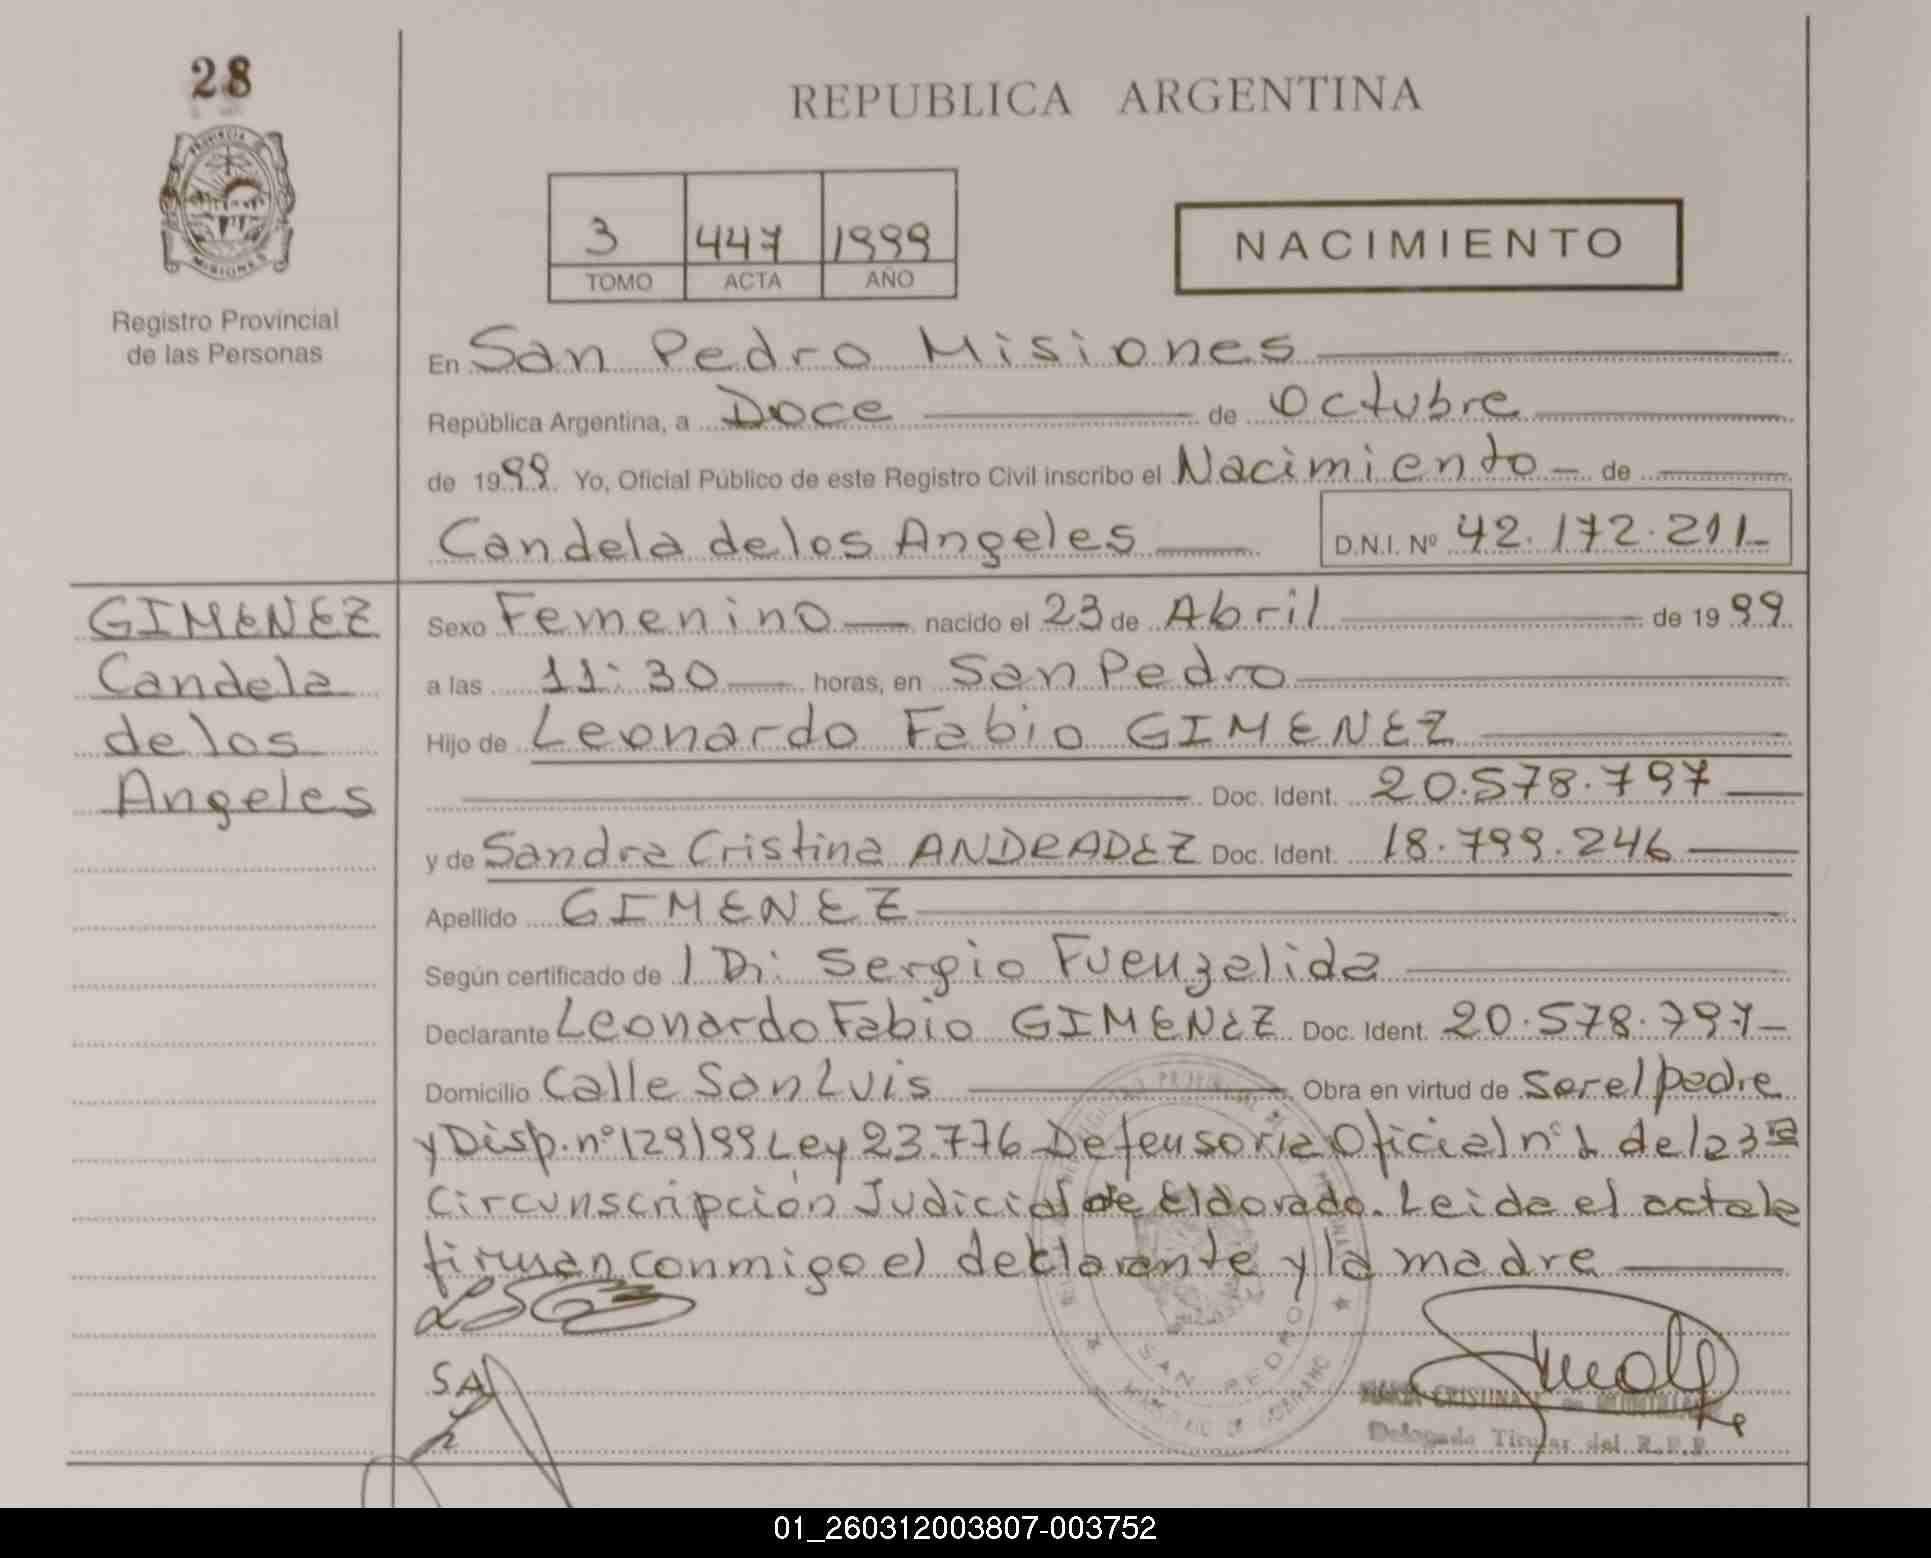 28
REPUBLICA ARGENTINA
PROVINCIA DE
MISIONES
3 447 1999
TOMO ACTA AÑO
NACIMIENTO
Registro Provincial
de las Personas
En San Pedro Misiones
República Argentina, a Doce de Octubre
de 1999 Yo, Oficial Público de este Registro Civil inscribo el Nacimiento de
Candela de los Angeles D.N.I. Nº 42.172.211
GIMENEZ
Candela
de los
Angeles
Sexo Femenino nacido el 23 de Abril de 1999
a las 11:30 horas, en San Pedro
Hijo de Leonardo Fabio GIMENEZ
Doc. Ident. 20.578.797
y de Sandra Cristina ANDRADEZ Doc. Ident. 18.799.246
Apellido GIMENEZ
Según certificado de 1 Dr: Sergio Fuenzalida
Declarante Leonardo Fabio GIMENEZ Doc. Ident. 20.578.797
Domicilio Calle San Luis Obra en virtud de ser el padre
y Disp. nº 129/99 Ley 23.776 Defensoria Oficial nº 1 de la 3ra
Circunscripción Judicial de Eldorado. Leida el acta la
firman conmigo el declarante y la madre
SAN PEDRO
MINISTERIO DE GOBIERNO
CRISTINA
Delegada Titular del R.P.P.
01_260312003807-003752